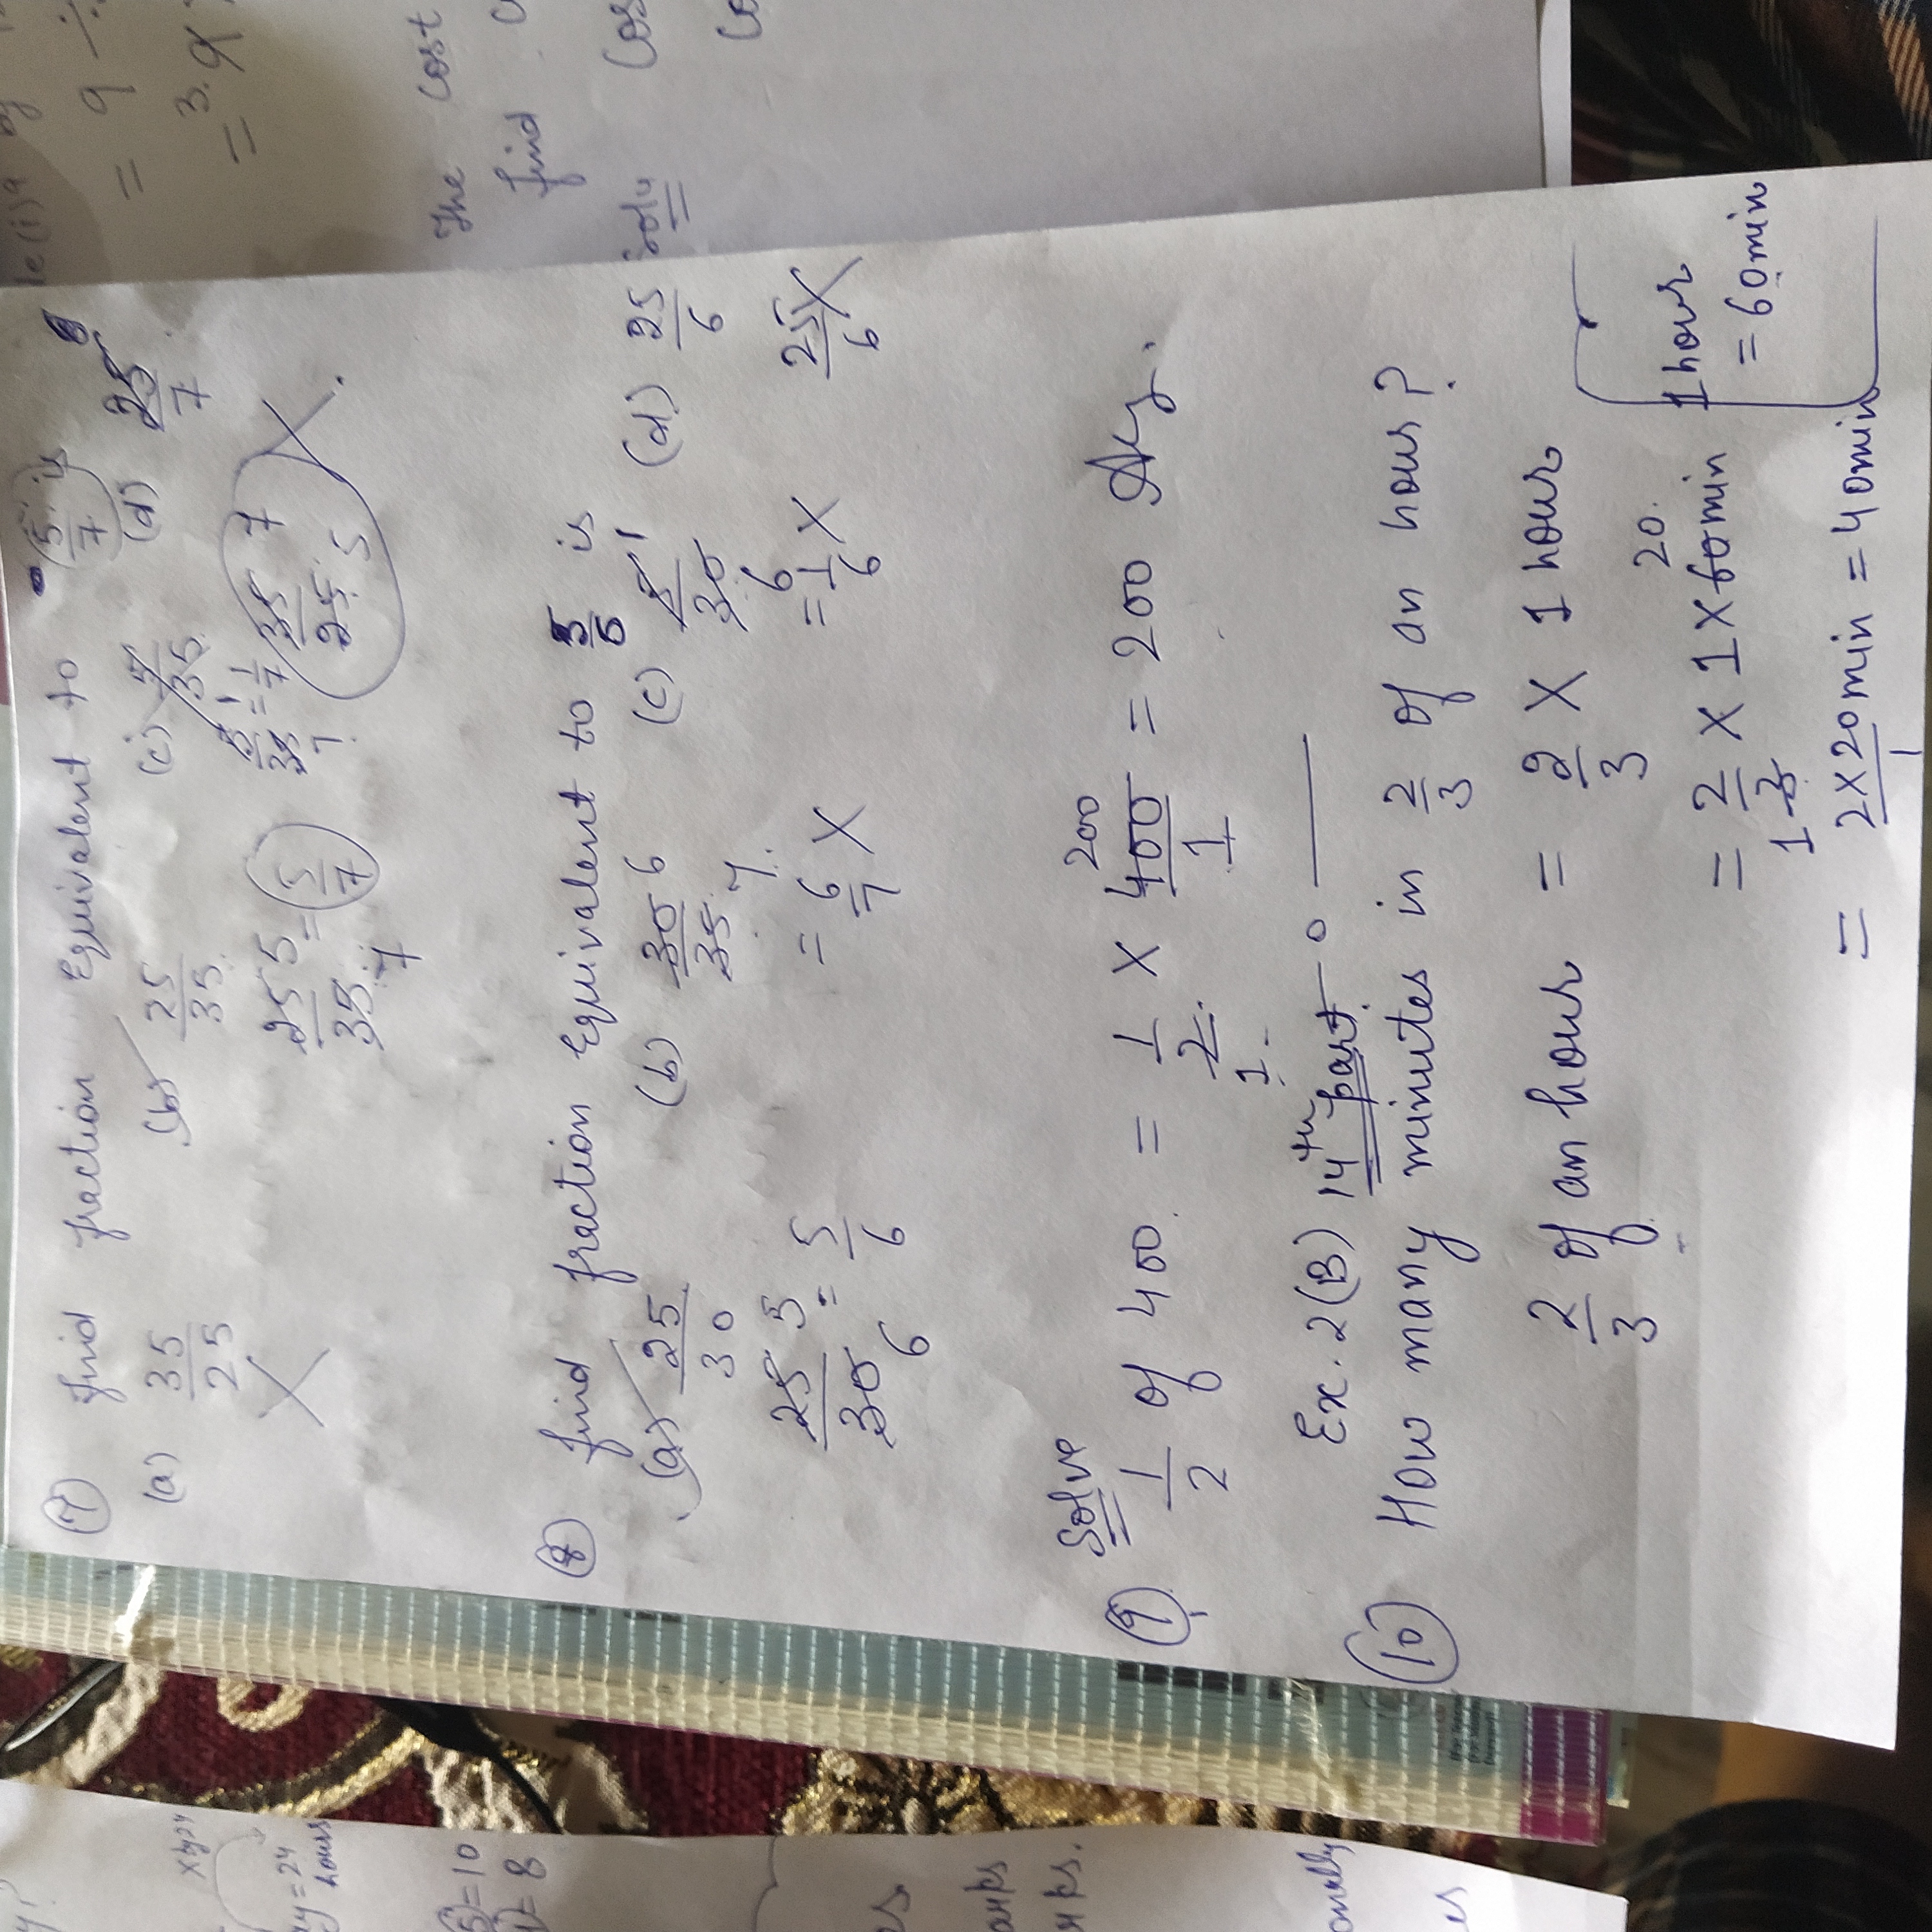 (7) find fraction Equivalent to 5/7 is
(a) 35/25 (b) 25/35 (c) 5/35 (d) 25/7
X 25/35 5 7 = 5/7 5/35 1 7 = 1/7 35/25 7 5 X
(8) find fraction Equivalent to 5/6 is
(a) 25/30 (b) 30/35 6 7 (c) 5/30 1 6 (d) 25/6
25/30 5 6 = 5/6 = 6/7 X = 1/6 X 25/6 X
Solve
(9) 1/2 of 400 = 1/2 X 400/1 = 200
200
1
Ex. 2(B) 14th part
(10) How many minutes in 2/3 of an hour?
2/3 of an hour = 2/3 X 1 hour
20
= 2/3 X 1 X 60 min
1
= 2X20 min/1 = 40 min
1 hour
= 60 min
X by 24
= 24
hours
= 10
= 8
The cost
find
Soln
= 9 ÷